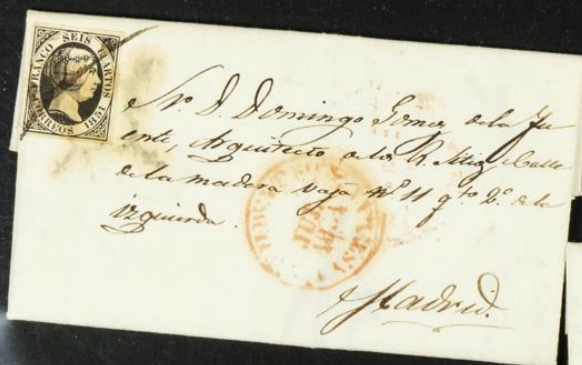 FRANCO SEIS CUARTOS
CORREOS 1851
Sr. D. Domingo Gomez de la Fu
ente, Arquitecto de los R. Sitios Calle
de la madera vaja Nº 11 qto 2º de la
izquierda.
JUL
1851
Madrid.